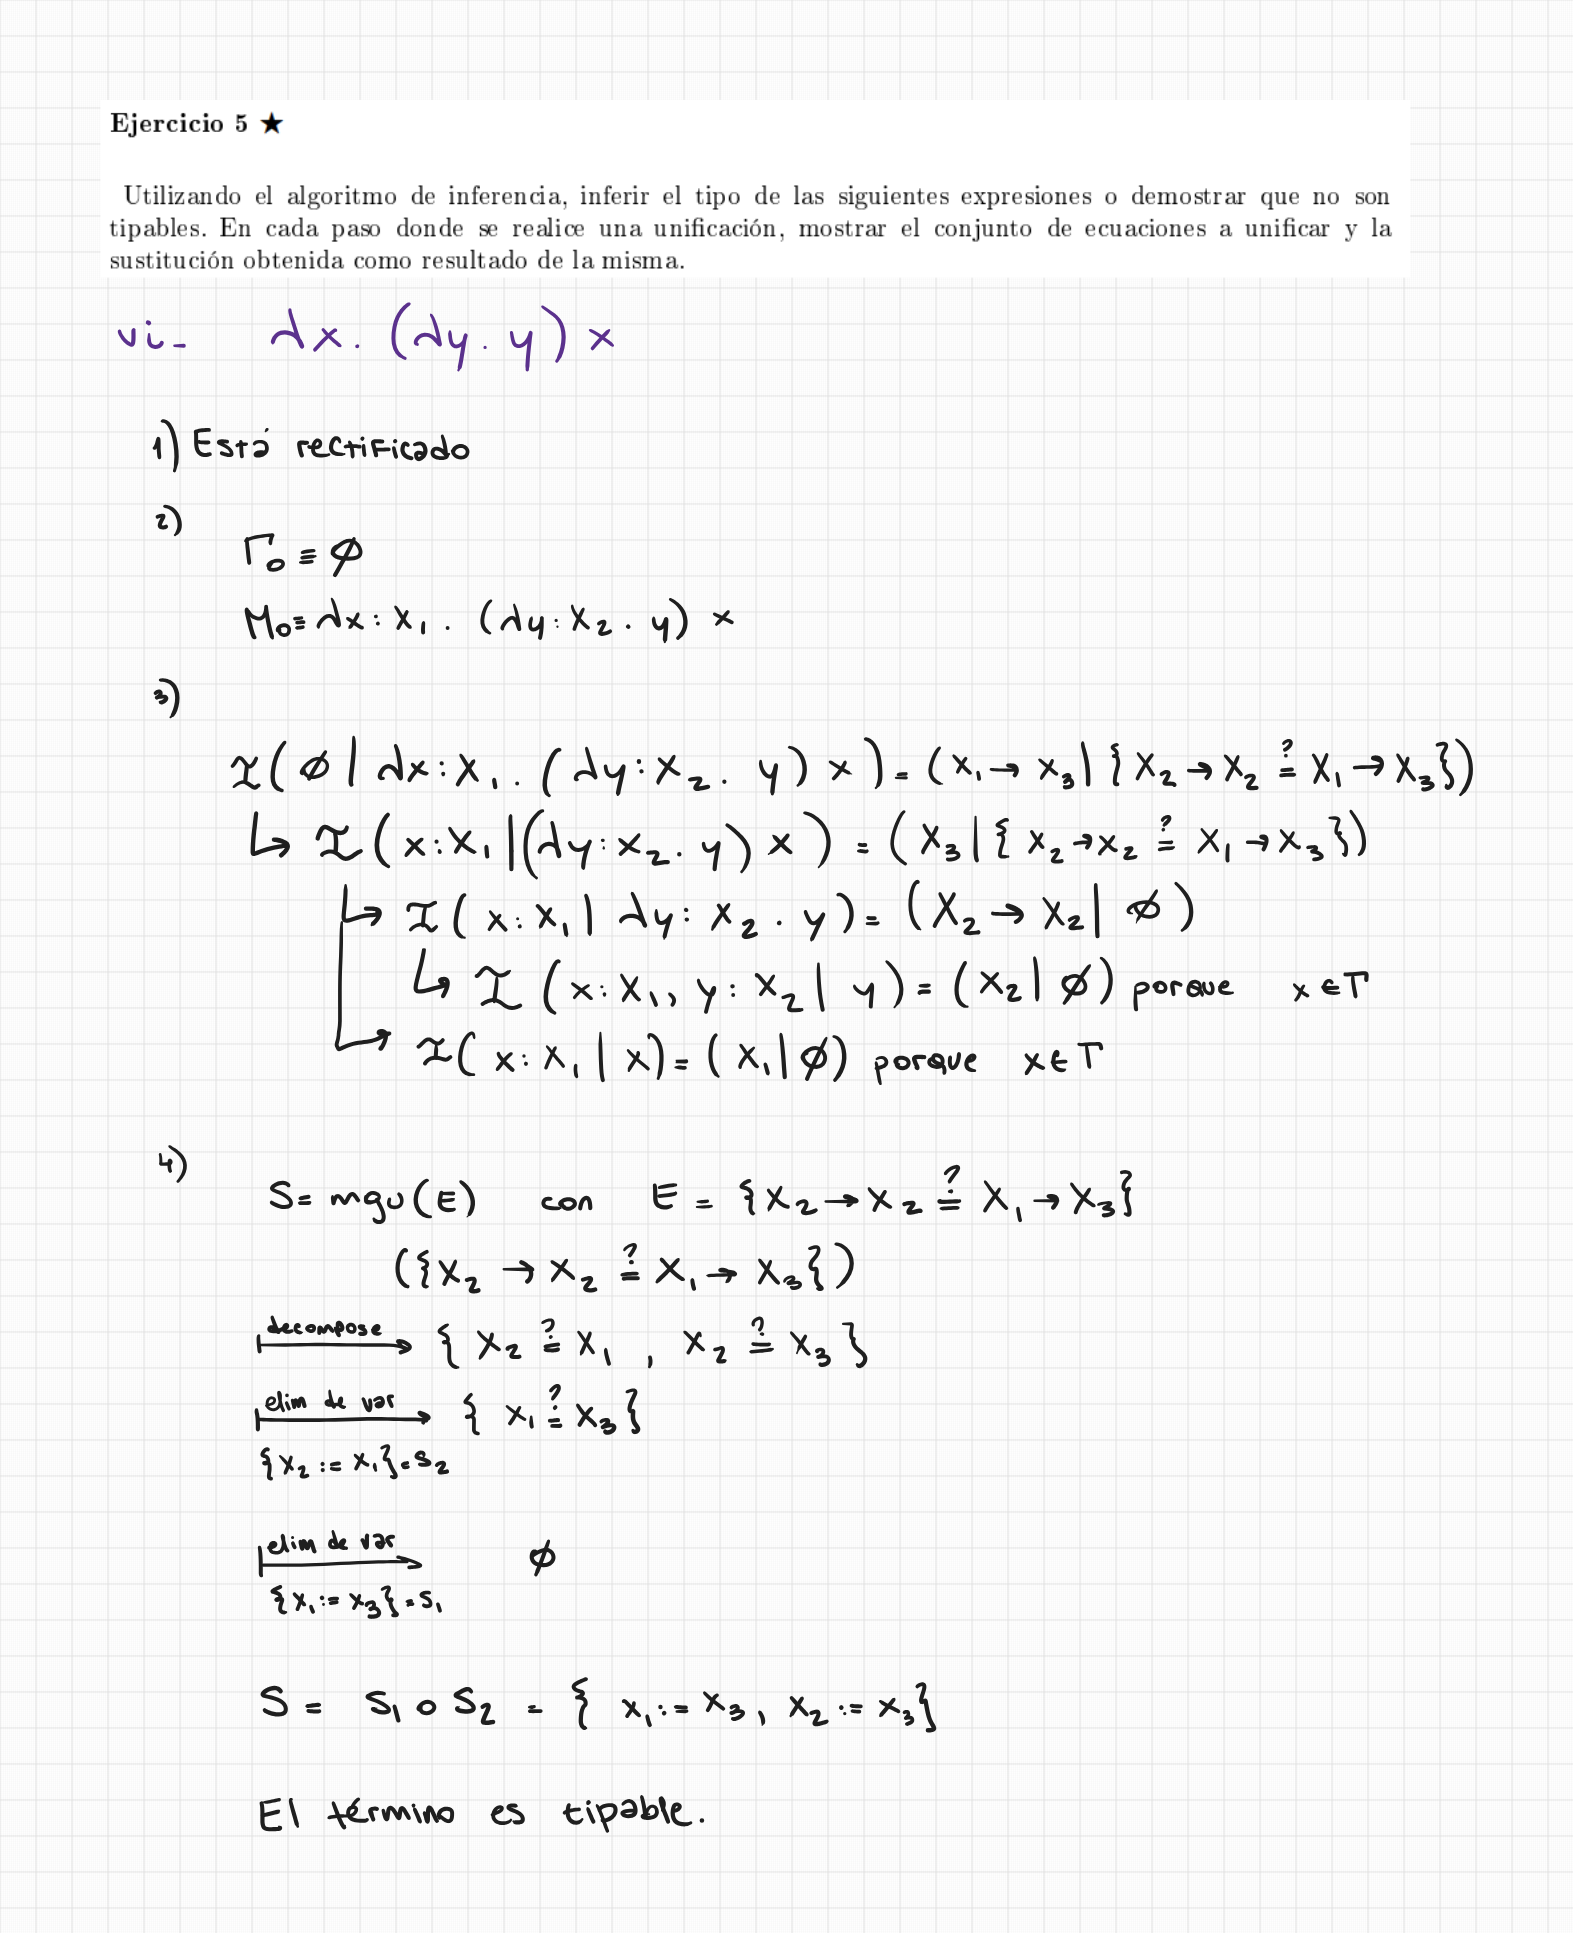 Ejercicio 5 ★
Utilizando el algoritmo de inferencia, inferir el tipo de las siguientes expresiones o demostrar que no son
tipables. En cada paso donde se realice una unificación, mostrar el conjunto de ecuaciones a unificar y la
sustitución obtenida como resultado de la misma.
vi- λx. (λy. y) x
1) Está rectificado
2)
Γ₀ ≡ ∅
M₀ ≡ λx : X₁ . (λy : X₂ . y) x
3)
I(∅ | λx : X₁. (λy : X₂. y) x) = (X₁ → X₃ | {X₂ → X₂ ≟ X₁ → X₃})
↳ I(x : X₁ | (λy : X₂. y) x) = (X₃ | {X₂ → X₂ ≟ X₁ → X₃})
↳ I(x : X₁ | λy : X₂ . y) = (X₂ → X₂ | ∅)
↳ I(x : X₁, y : X₂ | y) = (X₂ | ∅) porque x ∈ Γ
↳ I(x : X₁ | x) = (X₁ | ∅) porque x ∈ Γ
4)
S = mgu(E) con E = {X₂ → X₂ ≟ X₁ → X₃}
({X₂ → X₂ ≟ X₁ → X₃})
decompose {X₂ ≟ X₁ , X₂ ≟ X₃}
elim de var {X₁ ≟ X₃}
{X₂ := X₁} = S₂
elim de var ∅
{X₁ := X₃} = S₁
S = S₁ ∘ S₂ = {X₁ := X₃, X₂ := X₃}
El término es tipable.